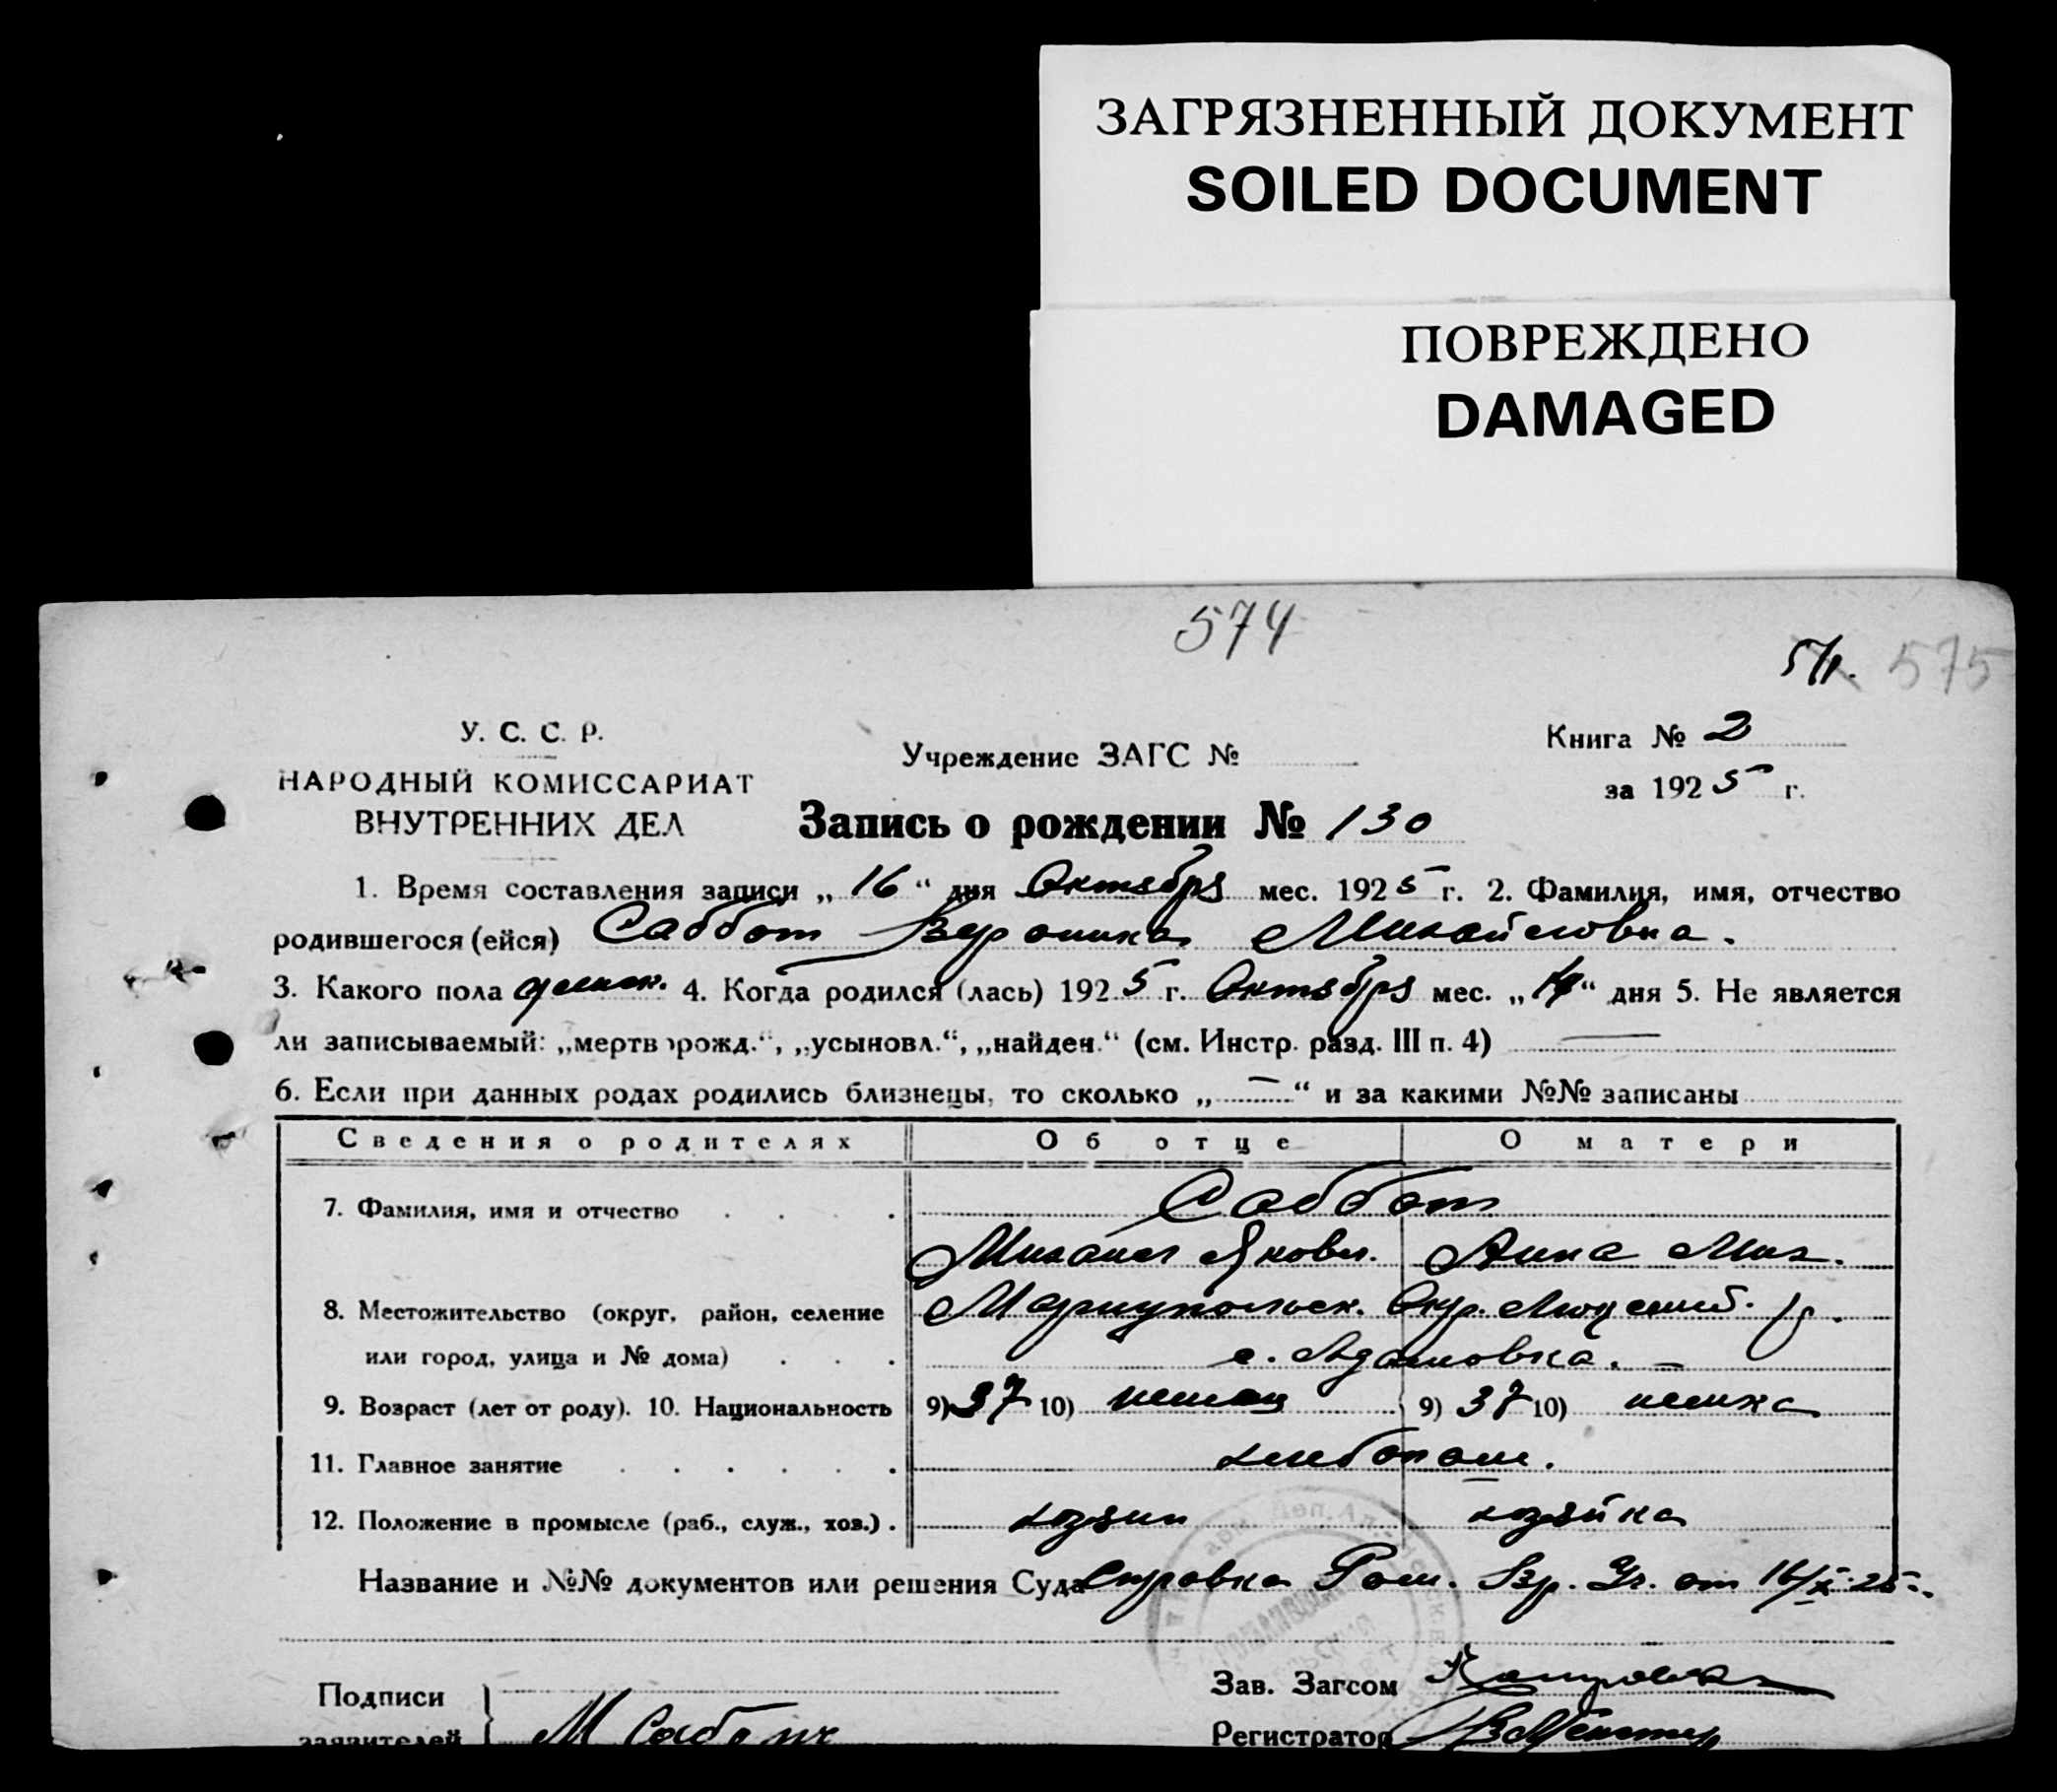 ЗАГРЯЗНЕННЫЙ ДОКУМЕНТ
SOILED DOCUMENT
ПОВРЕЖДЕНО
DAMAGED
574
575
У. С. С. Р.
НАРОДНЫЙ КОМИССАРИАТ
ВНУТРЕННИХ ДЕЛ
Учреждение ЗАГС №
Книга № 2
за 1925 г.
Запись о рождении № 130
1. Время составления записи „16“ дня Октября мес. 1925 г. 2. Фамилия, имя, отчество
родившегося (ейся) Саббот Вероника Михайловна.
3. Какого пола женск. 4. Когда родился (лась) 1925 г. Октября мес. „ “ дня 5. Не является
ли записываемый: „мертворожд.“, „усыновл.“, „найден.“ (см. Инстр. разд. III п. 4) —
6. Если при данных родах родились близнецы, то сколько „—“ и за какими №№ записаны
Сведения о родителях Об отце О матери
7. Фамилия, имя и отчество . . . . Саббот
Михаил Яковл. Анна Мих.
8. Местожительство (округ, район, селение Мариупольск. Окр. Люксемб. р.
или город, улица и № дома) . . . с. Адамовка. —
9. Возраст (лет от роду). 10. Национальность 9) 37 10) немец 9) 37 10) немка
11. Главное занятие . . . . . . хлебопаш.
12. Положение в промысле (раб., служ., хоз.) . хозяин хозяйка
Название и №№ документов или решения Суда Справка от 16/X 25
Подписи
заявителей
М Саббот
Зав. Загсом
Регистратор